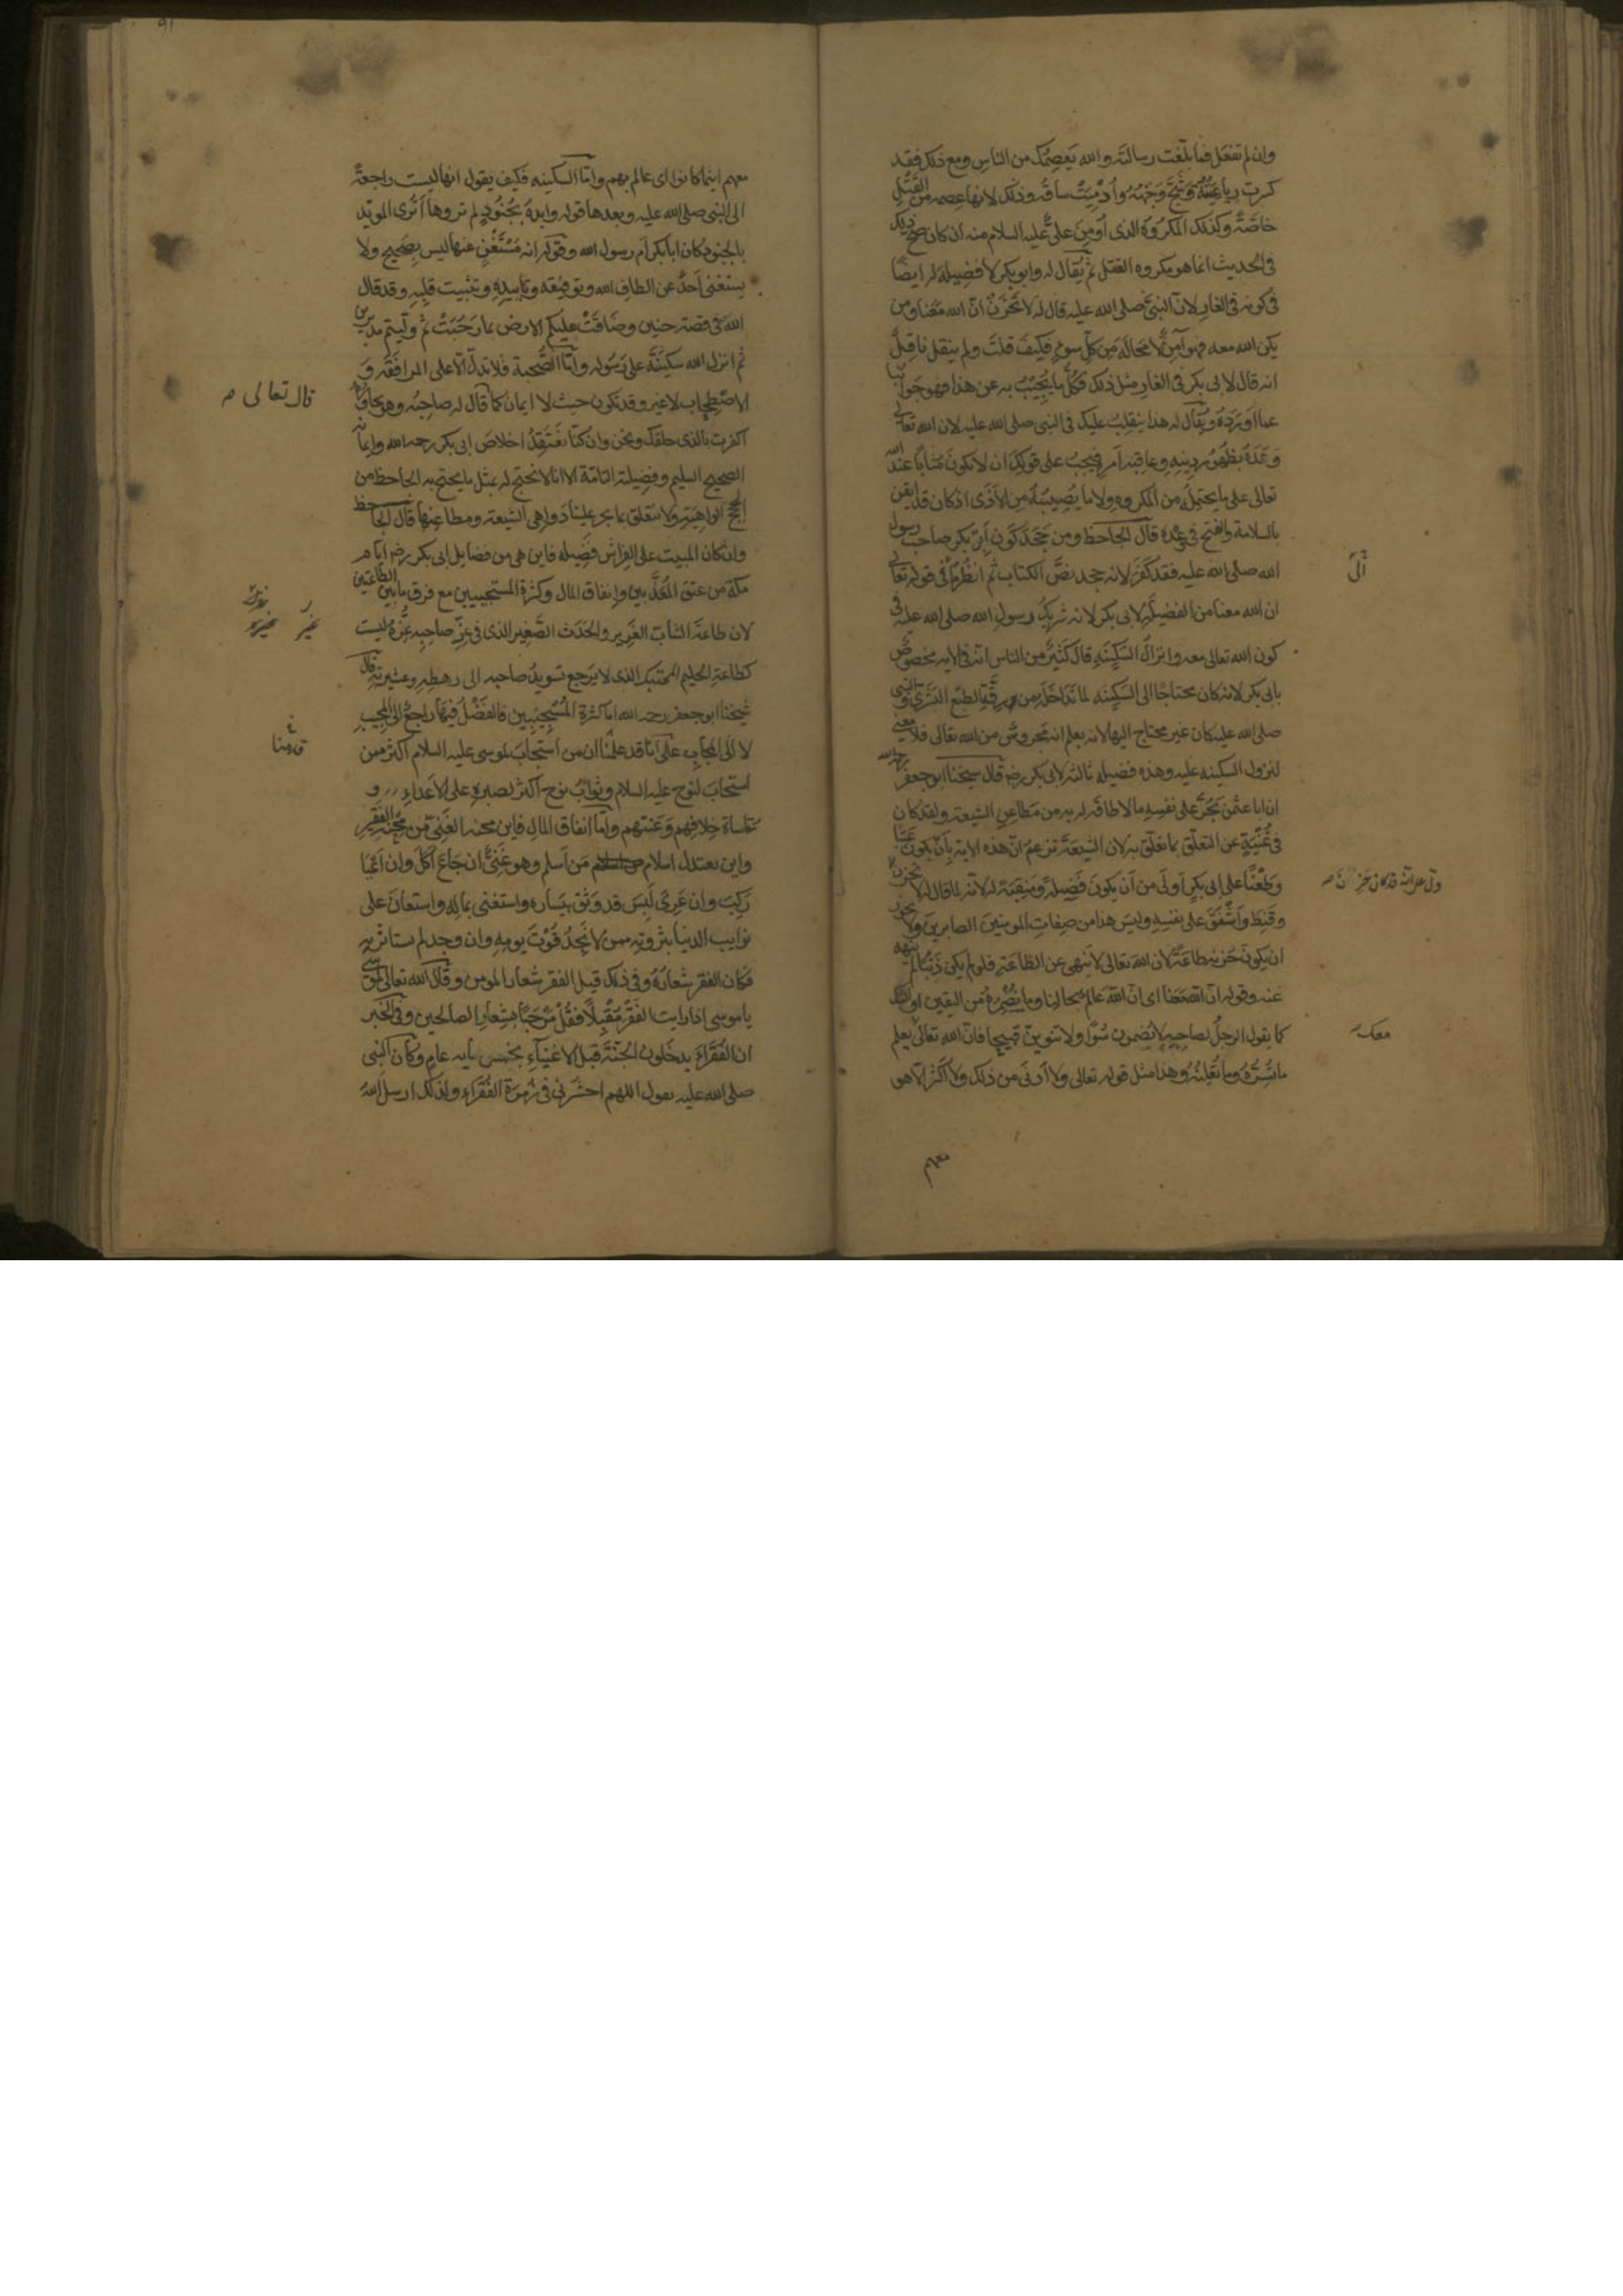 وان لم تفعل فما بلغت رسالته والله يعصمك من الناس ومع ذلك فقد
كسرت رباعيته وشج وجهه وادميت ساقه وذلك لانها عصمه من القتل
خاصة وكذلك المكروه الذى اومن على عليه السلام منه ان كان صح ذلك
فى الحديث انما هو مكروه القتل ثم يقال له وابو بكر لا فضيلة له ايضا
فى كونه فى الغار لان النبى صلى الله عليه قال له لا تحزن ان الله معنا ومن
يكن الله معه فهو آمن لا محالة من كل سوء فكيف قلت ولم ينقل ناقل
انه قال لابى بكر فى الغار مثل ذلك فكل ما يجيب به عن هذا فهو جوابنا
عما اورده ويقال له هذا ينقلب عليك فى النبى صلى الله عليه لان الله تعالى
وعده بظهور دينه وعاقبه امره فيجب على قولك ان لا يكون مثابا عند الله
تعالى على ما يحتمله من المكروه ولا ما يصيبه من الاذى اذ كان قد ايقن
بالسلامة والفتح فى عدته قال الجاحظ ومن جحد كون ابى بكر صاحب رسول
الله صلى الله عليه فقد كفر لانه جحد نص الكتاب ثم انظر ما فى قوله تعالى
الى
ان الله معنا من الفضيلة لابى بكر لانه شريك رسول الله صلى الله عليه فى
كون الله تعالى معه وانزال السكينه قال كثير من الناس انه فى الايه مخصوص
بابى بكر لانه كان محتاجا الى السكينه لما تداخله من رقة الطبع البشرى والنبى
صلى الله عليه كان غير محتاج اليها لانه يعلم انه محروس من الله تعالى فلا معنى
لنزول السكينه عليه وهذه فضيله ثالثه لابى بكر رضه قال شيخنا ابو جعفر رحمه الله
ان ابا عثمن يجر على نفسه ما لا طاقة له به من مطاعن الشيعه ولقد كان
فى غنية عن التعلق بما تعلق به لان الشيعة تزعم ان هذه الايه بان يكون عيبا
وطعنا على ابى بكر اولى من ان يكون فضيلة ومنقبة له لانه لما قال له لا تحزن
دل على انه قد كان حزن
وقنط واشفق على نفسه وليس هذا من صفات المومنين الصابرين ولا يجوز
ان يكون حزنه طاعة لان الله تعالى لا ينهى عن الطاعة فلو لم يكن ذنبا لم ينهه
عنه وقوله ان الله معنا اى ان الله عالم بحالنا وما نضمره من اليقين او الشك
كما يقول الرجل لصاحبه لا تضمرن سوءا ولا تنوين قبيحا فان الله تعالى يعلم
ما نسره وما نعلنه وهذا مثل قوله تعالى ولا ادنى من ذلك ولا اكثر الا هو
معهم
معهم اينما كانوا اى عالم بهم واما السكينه فكيف يقول انها ليست راجعة
الى النبى صلى الله عليه وبعدها قوله وايده بجنود لم تروها اترى المويد
بالجنود كان ابا بكر ام رسول الله وقوله انه مستغن عنها ليس بصحيح ولا
يستغنى احد عن الطاف الله وتوفيقه وتاييده وتثبيت قلبه وقد قال
الله فى قصة حنين وضاقت عليكم الارض بما رحبت ثم وليتم مدبرين
ثم انزل الله سكينته على رسوله واما الصحبة فلا تدل الا على المرافقه و
الاصطحاب لا غير وقد تكون حيث لا ايمان كما قال له صاحبه وهو يحاوره
قال تعالى
اكفرت بالذى خلقك ونحن وان كنا نعتقد اخلاص ابى بكر رحمه الله وايمانه
الصحيح السليم وفضيلته التامة الا انا لا نحتج له بمثل ما يحتج به الجاحظ من
الحجج الواهية ولا نتعلق بما يجر علينا دواهى الشيعه ومطاعنها قال الجاحظ
وان كان المبيت على الفراش فضيله فاين هى من فضايل ابى بكر رضه ايام
مكة من عتق المعذبين وانفاق المال وكثرة المستجيبين مع فرق ما بين الطاعتين
لان طاعة الشاب الغرير والحدث الصغير الذى فى عز صاحبه عزه ليست
كطاعة الحليم المحتنك الذى لا يرجع تسويد صاحبه الى رهطه وعشيرته قال
شيخنا ابو جعفر رحمه الله اما كثرة المستجيبين فالفضل فيها راجع الى المجيب
لا الى المجاب على انا قد علمنا ان من استجاب لموسى عليه السلام اكثر ممن
استجاب لنوح عليه السلام وثواب نوح اكثر لصبره على الاعداء و
مقاساة خلافهم وعنتهم واما انفاق المال فاين محنه الغنى من محنه الفقير
واين يعتدل اسلام من اسلم وهو غنى ان جاع اكل وان اعيا
ركب وان عرى لبس قد وثق بيساره واستغنى بماله واستعان على
نوايب الدنيا بثروته ممن لا يجد قوت يومه وان وجد لم يستاثر به
فكان الفقر شعاره وفى ذلك قيل الفقر شعار المومن وقال الله تعالى لموسى
يا موسى اذا رايت الفقر مقبلا فقل مرحبا بشعار الصالحين وفى الخبر
ان الفقراء يدخلون الجنة قبل الاغنياء بخمس مايه عام وكان النبى
صلى الله عليه يقول اللهم احشرنى فى زمرة الفقراء ولذلك ارسل الله